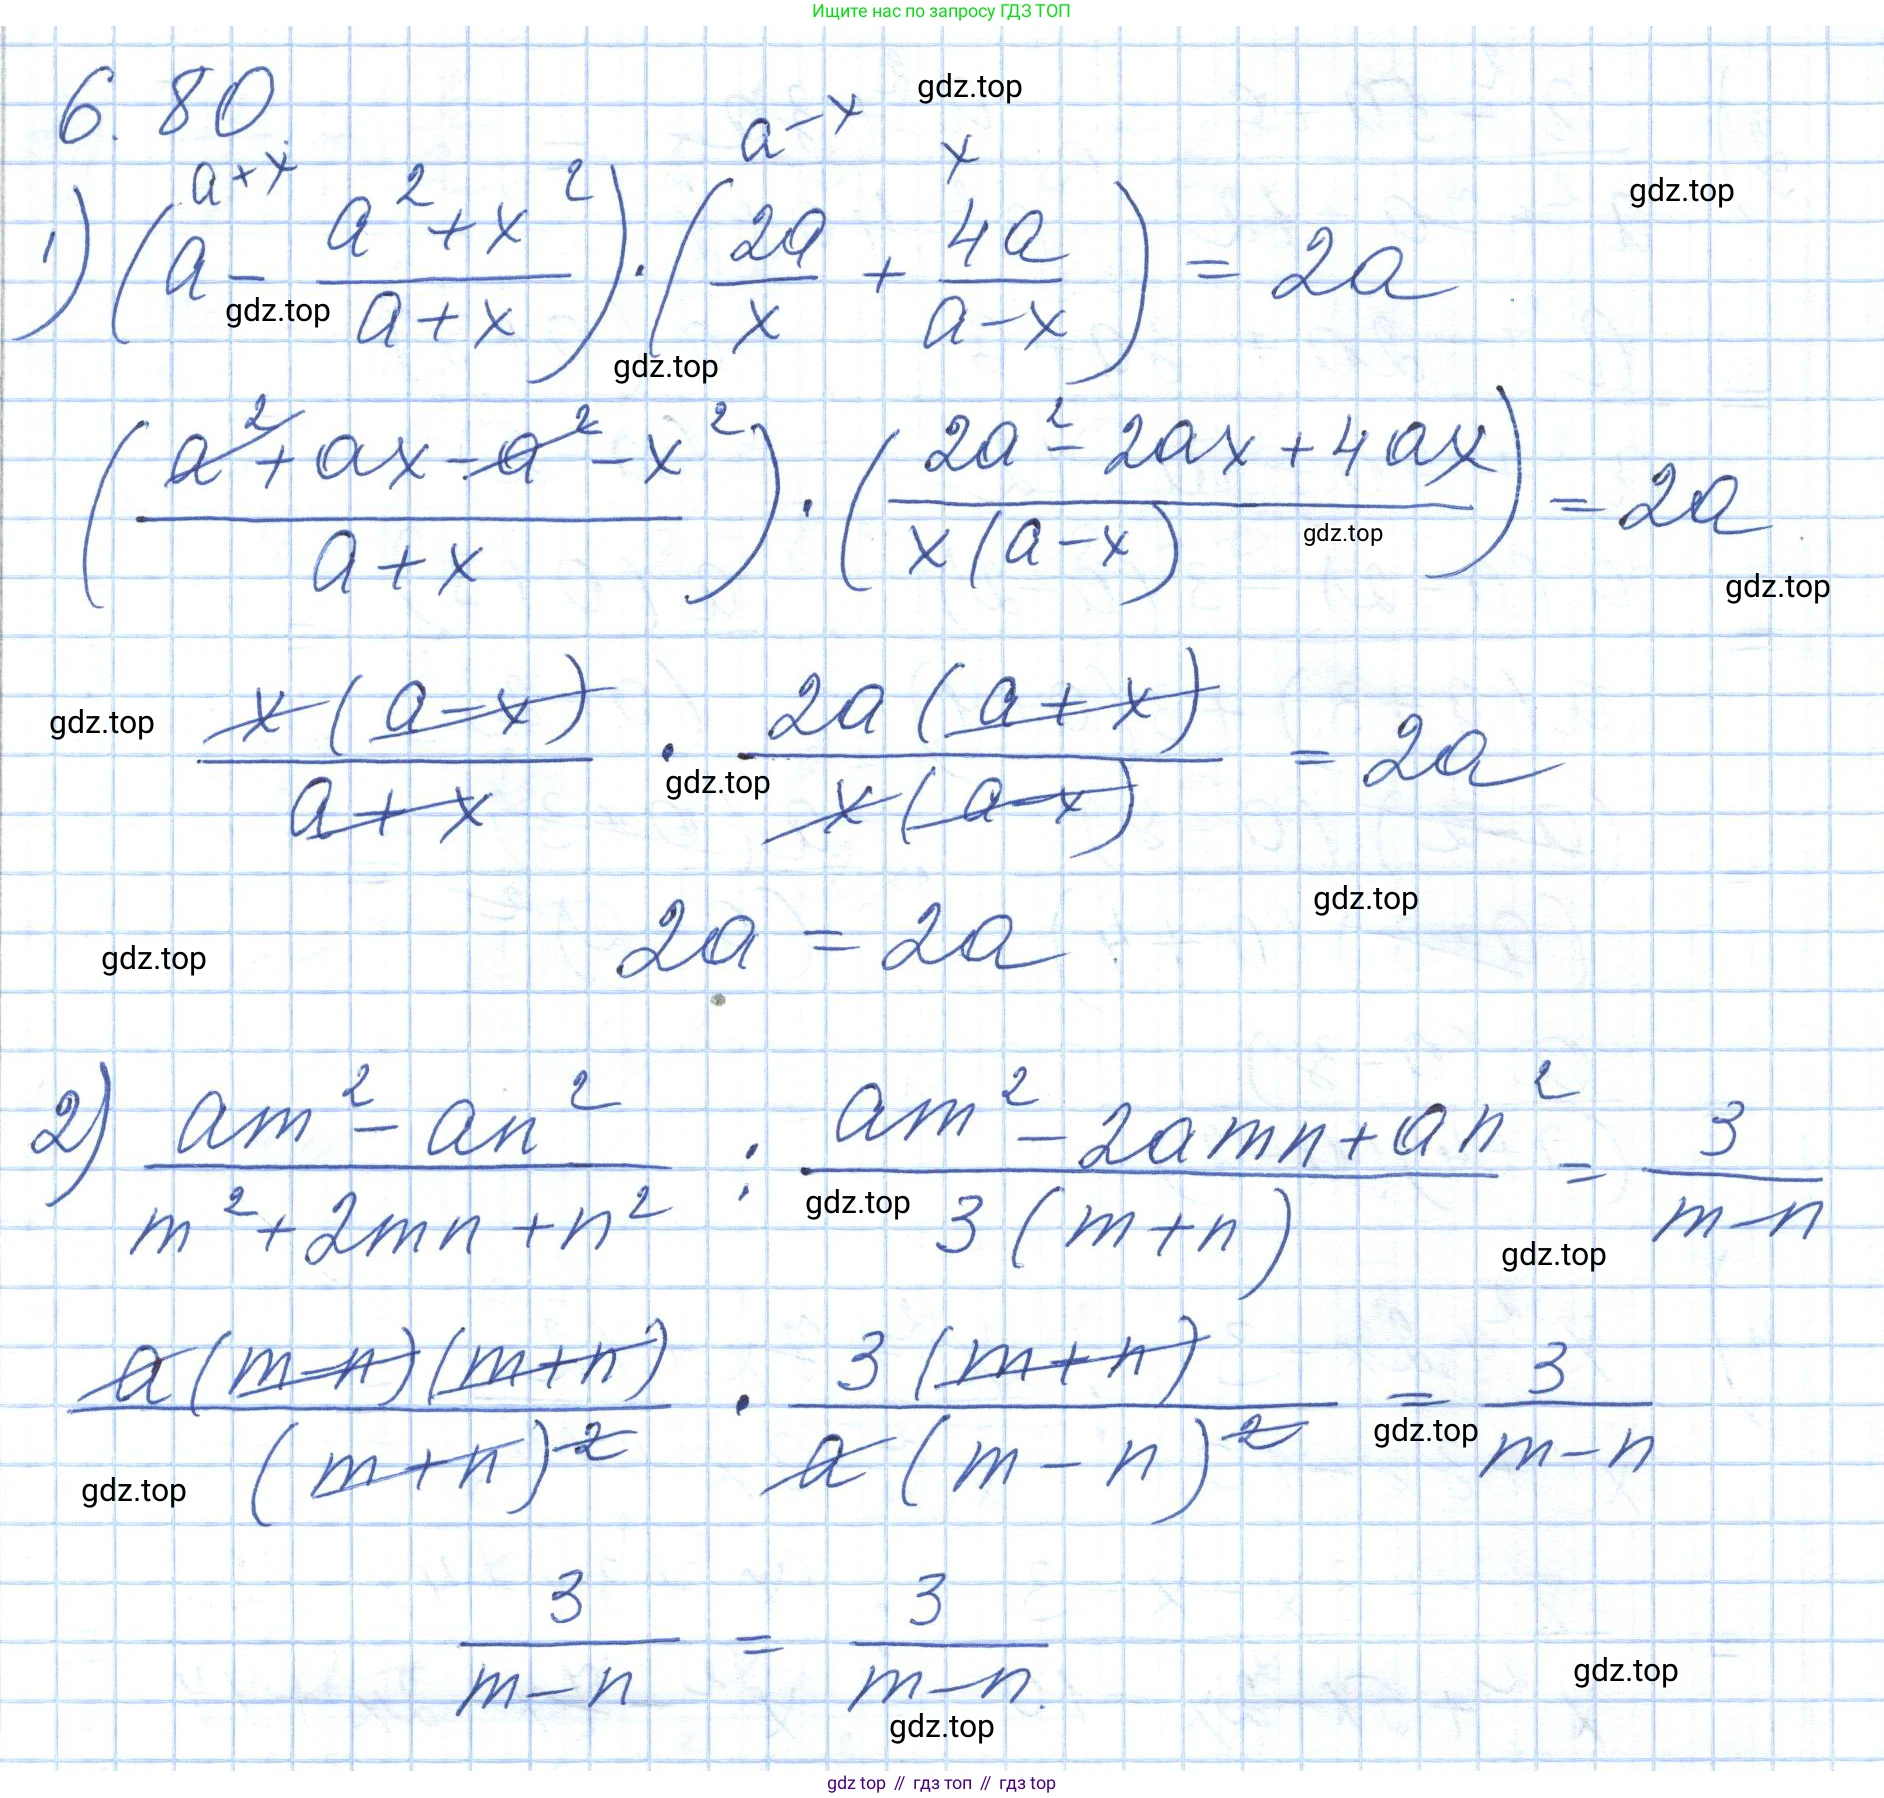 Ищите нас по запросу ГДЗ ТОП
6.80.
gdz.top
1) (a^{a+x} - (a² + x²)/(a + x)) · (2a/x^{a-x} + 4a/(a - x)^{x}) = 2a
gdz.top
gdz.top
gdz.top
((a² + ax - a² - x²)/(a + x)) · ((2a² - 2ax + 4ax)/(x(a - x))) = 2a
gdz.top
gdz.top
gdz.top
x(a - x)/(a + x) · 2a(a + x)/(x(a - x)) = 2a
gdz.top
gdz.top
2a = 2a
gdz.top
2) (am² - an²)/(m² + 2mn + n²) : (am² - 2amn + an²)/(3(m + n)) = 3/(m - n)
gdz.top
gdz.top
a(m - n)(m + n)/(m + n)² · 3(m + n)/(a(m - n)²) = 3/(m - n)
gdz.top
gdz.top
3/(m - n) = 3/(m - n).
gdz.top
gdz.top
gdz top // гдз топ // гдз top